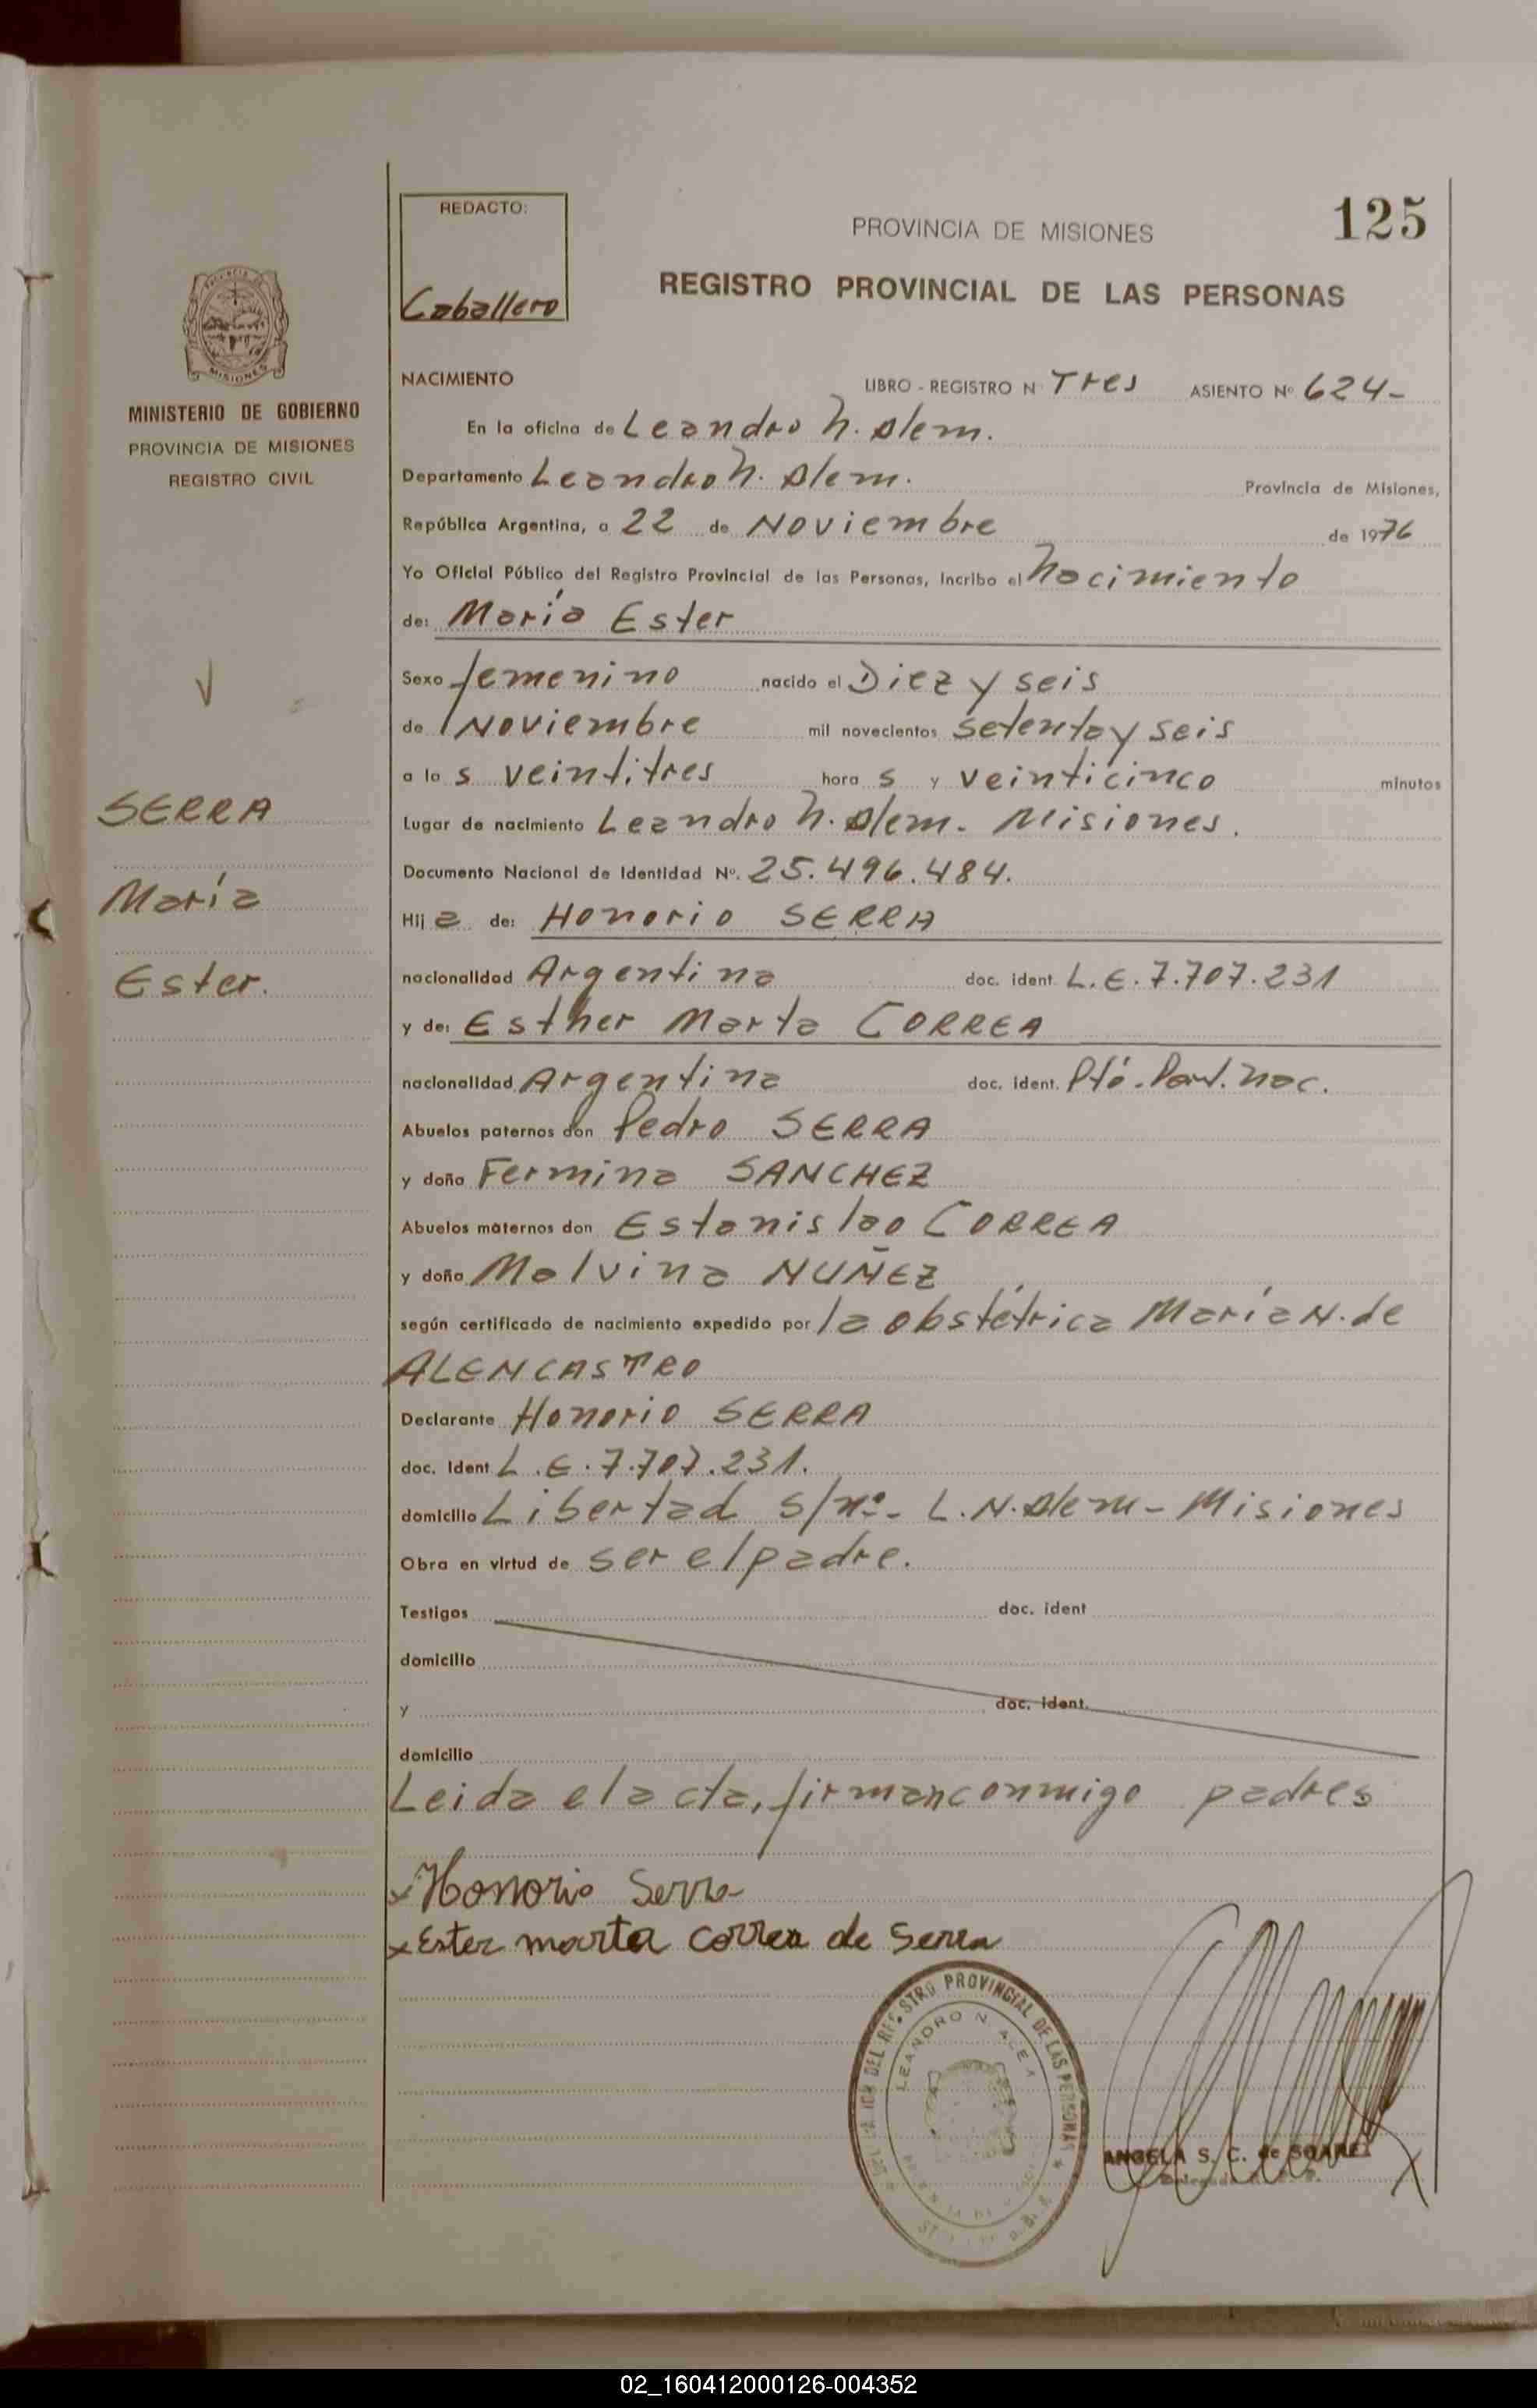 REDACTO:
Caballero
PROVINCIA DE MISIONES
125
REGISTRO PROVINCIAL DE LAS PERSONAS
MISIONES
MINISTERIO DE GOBIERNO
PROVINCIA DE MISIONES
REGISTRO CIVIL
NACIMIENTO LIBRO - REGISTRO N Tres ASIENTO Nº 624-
En la oficina de Leandro N. Alem.
Departamento Leandro N. Alem. Provincia de Misiones,
República Argentina, a 22 de Noviembre de 1976
Yo Oficial Público del Registro Provincial de las Personas, Incribo el Nacimiento
de: María Ester
Sexo femenino nacido el Diez y seis
de Noviembre mil novecientos setenta y seis
a la s veintitres hora s y veinticinco minutos
Lugar de nacimiento Leandro N. Alem. Misiones.
Documento Nacional de Identidad Nº. 25.496.484.
Hij a de: Honorio SERRA
nacionalidad Argentina doc. ident. L.E. 7.707.231
y de: Esther Marta CORREA
nacionalidad Argentina doc. ident.
Abuelos paternos don Pedro SERRA
y doña Fermina SANCHEZ
Abuelos maternos don Estanislao CORREA
y doña Malvina NUÑEZ
según certificado de nacimiento expedido por la obstétrica María N. de
ALENCASTRO
Declarante Honorio SERRA
doc. Ident L.E. 7.707.231.
domicilio Libertad s/nº- L.N. Alem- Misiones
Obra en virtud de ser el padre.
Testigos doc. ident
domicilio
y doc. ident.
domicilio
Leida el acta, firman conmigo padres
x Honorio Serra
x Ester marta correa de Serra
SERRA
María
Ester.
REGISTRO PROVINCIAL DE LAS PERSONAS
LEANDRO N. ALEM
ANGELA S. C. de SOAREZ
02_160412000126-004352